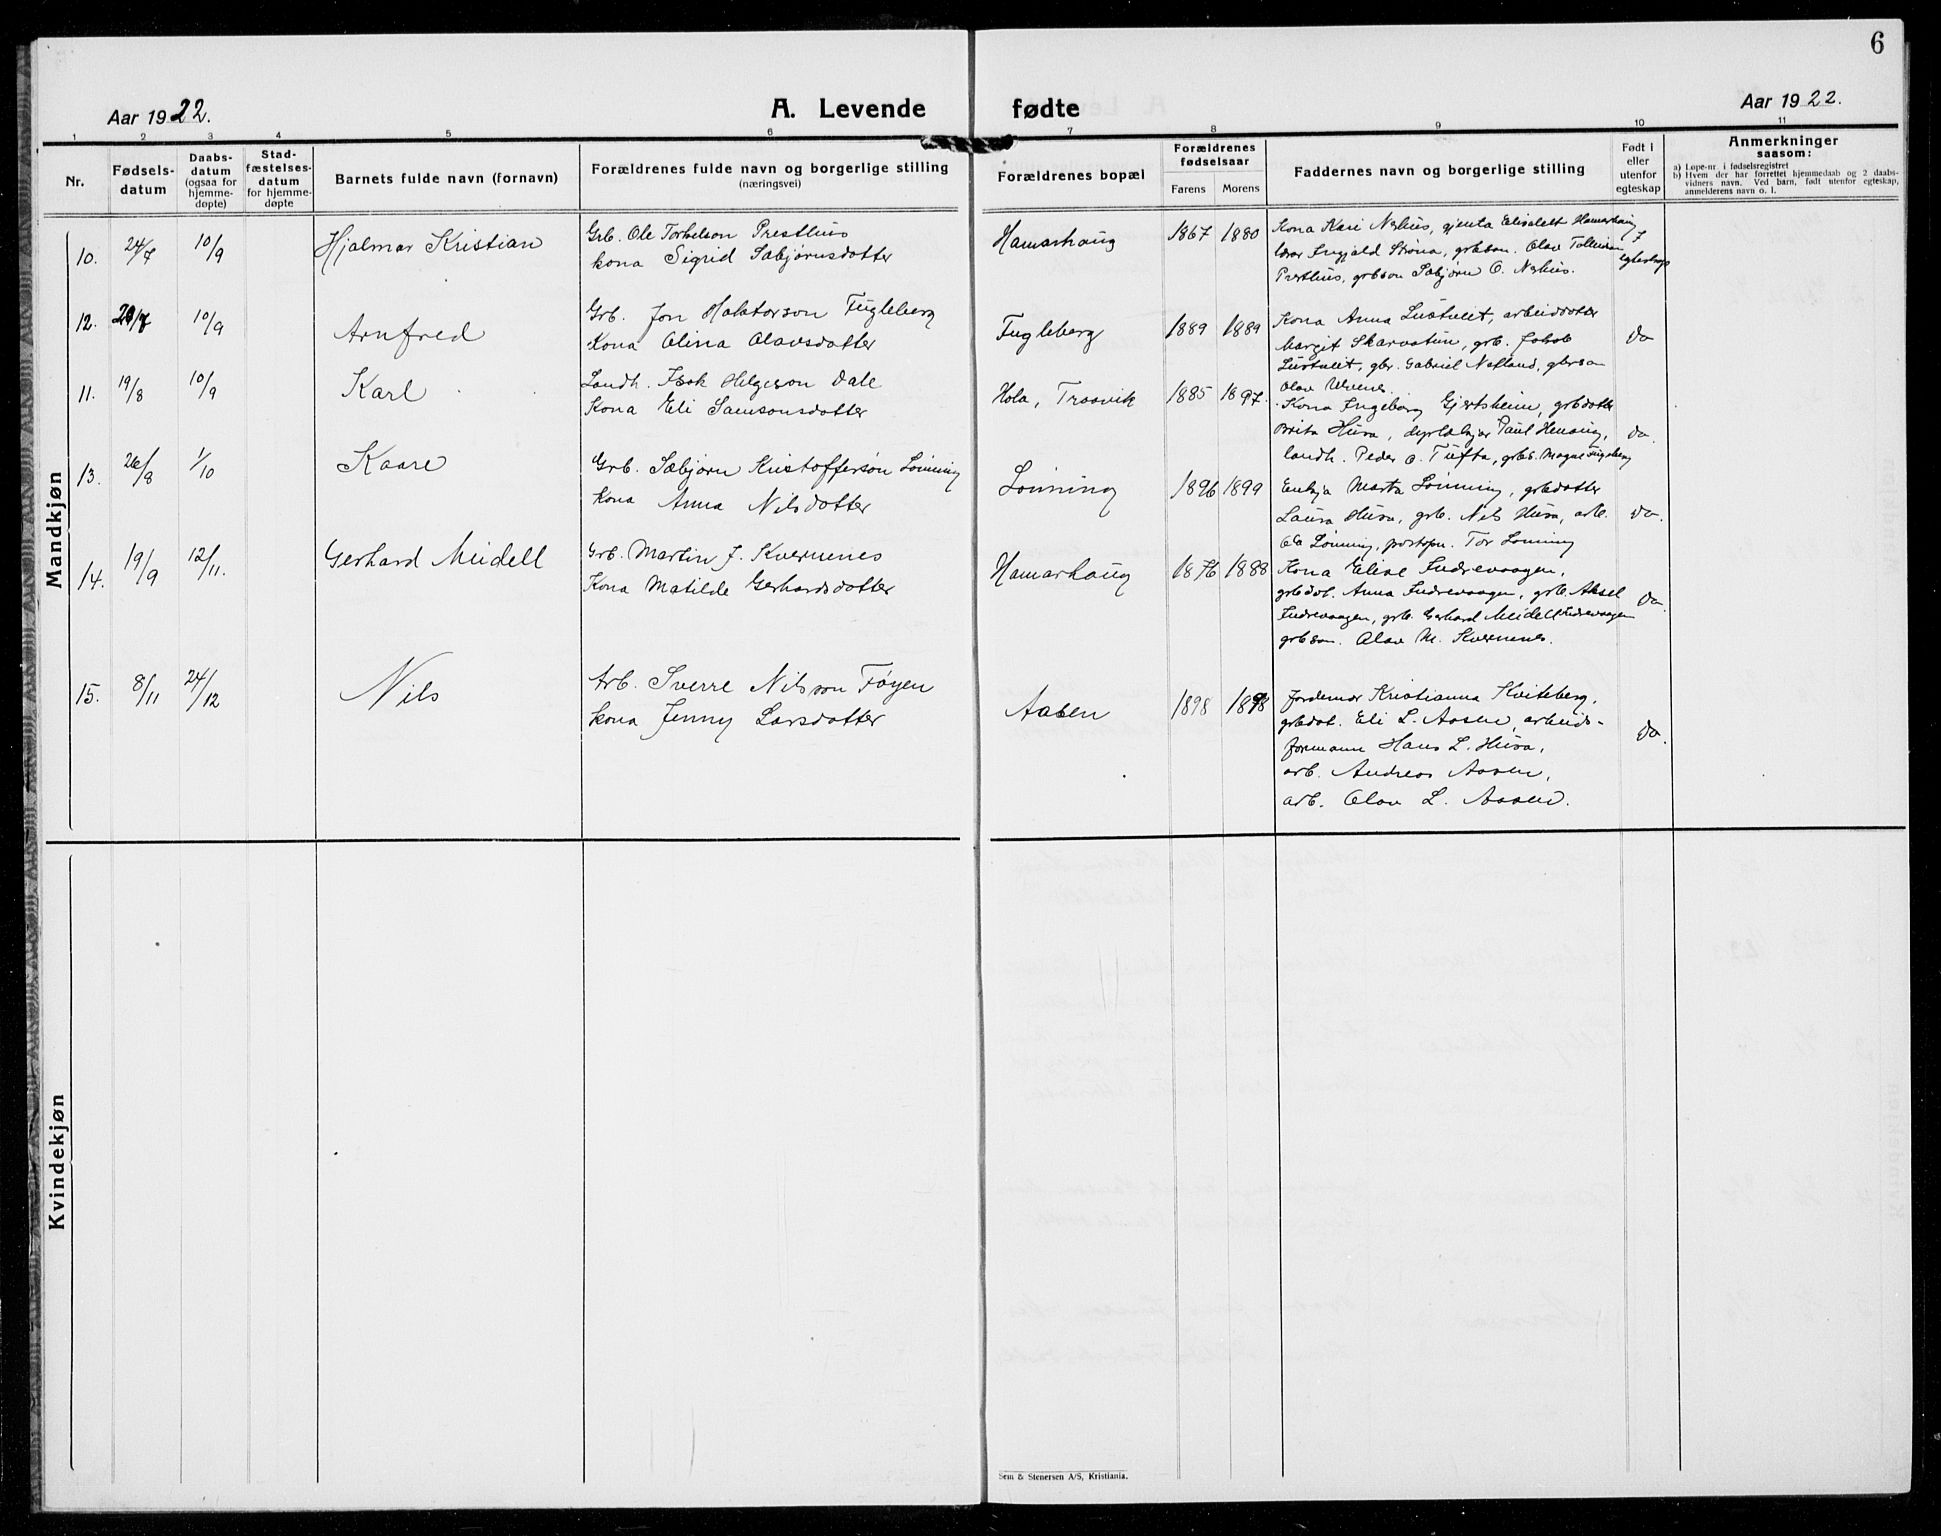 6
Aar 1922.
A. Levende fødte
Aar 1922.
1 2 3 4 5 6 7 8 9 10 11
Nr.
Fødsels-
datum
Daabs-
datum
(ogsaa for
hjemme-
døpte)
Stad-
fæstelses-
datum
for hjemme-
døpte
Barnets fulde navn (fornavn)
Forældrenes fulde navn og borgerlige stilling
(næringsvei)
Forældrenes bopæl
Forældrenes
fødselsaar
Farens
Morens
Faddernes navn og borgerlige stilling
Født i
eller
utenfor
egteskap
Anmerkninger
saasom:
a) Løpe-nr. i fødselsregistret
b) Hvem der har forrettet hjemmedaab og 2 daabs-
vidners navn. Ved barn, født utenfor egteskap,
anmelderens navn o. l.
Mandkjøn
10.
24/7
10/9
Hjalmar Kristian
Grb. Ole Torkelson Presthus
kona Sigrid Sæbjørnsdotter
Hamarhaug
1867 1880
Kona Kari Neshus, gjenta Elisabet Hamarhaug
lærar Ingjald Strøna, grbson. Olav
Presthus, grbson Sæbjørn O. Neshus.
I
egteskap
12.
10/9
Arnfred
Grb. Jon Haktorson Fugleberg
Kona Olina Olavsdotter
Fugleberg
1889 1889
Kona Anna, arbeiddotter
Margit Skarvatun, grb. Jakob
gbr. Gabriel, gbrson
Olav
Do
11.
19/8
10/9
Karl
Landh. Isak Helgeson Dale
Kona Eli Samsonsdotter
Hola, Traavik
1885 1897.
Kona Ingeborg Gjertsheim, grbdotter
Brita Husa, Paul Hensing,
landh. Peder O. Tufta, grbs. Magne Fugleberg
Do.
13.
26/8
1/10
Kaare
Grb. Sæbjørn Kristofferson Lønning
kona Anna Nilsdotter
Lønning
1896 1899
Enkja Marta Lønning, grbdotter
Laura Husa, grb. Nils Husa, arb.
Ola Lønning, postopn. Tor Lønning
Do.
14.
19/9
12/11.
Gerhard Meidell
Grb. Martin J. Kvernenes
Kona Matilde Gerhardsdotter
Hamarhaug
1876 1888
Kona Elise Indrevaagen,
grbdot. Anna Indrevaagen, grb. Aksel
Indrevaagen, grb. Gerhard Meidell Indrevaagen
grbson. Olav M. Kvernenes.
Do.
15.
8/11
24/12
Nils
Arb. Sverre Nilsson Føyen
kona Jenny Larsdotter
Aasen
1898 1898
Jordemor Kristianna Kviteberg,
grbdot. Eli L. Aasen, arbeids-
formann Hans L. Husa,
arb. Andreas Aasen,
arb. Olav L. Aasen.
Do.
Kvindekjøn
Sem & Stenersen A/S, Kristiania.